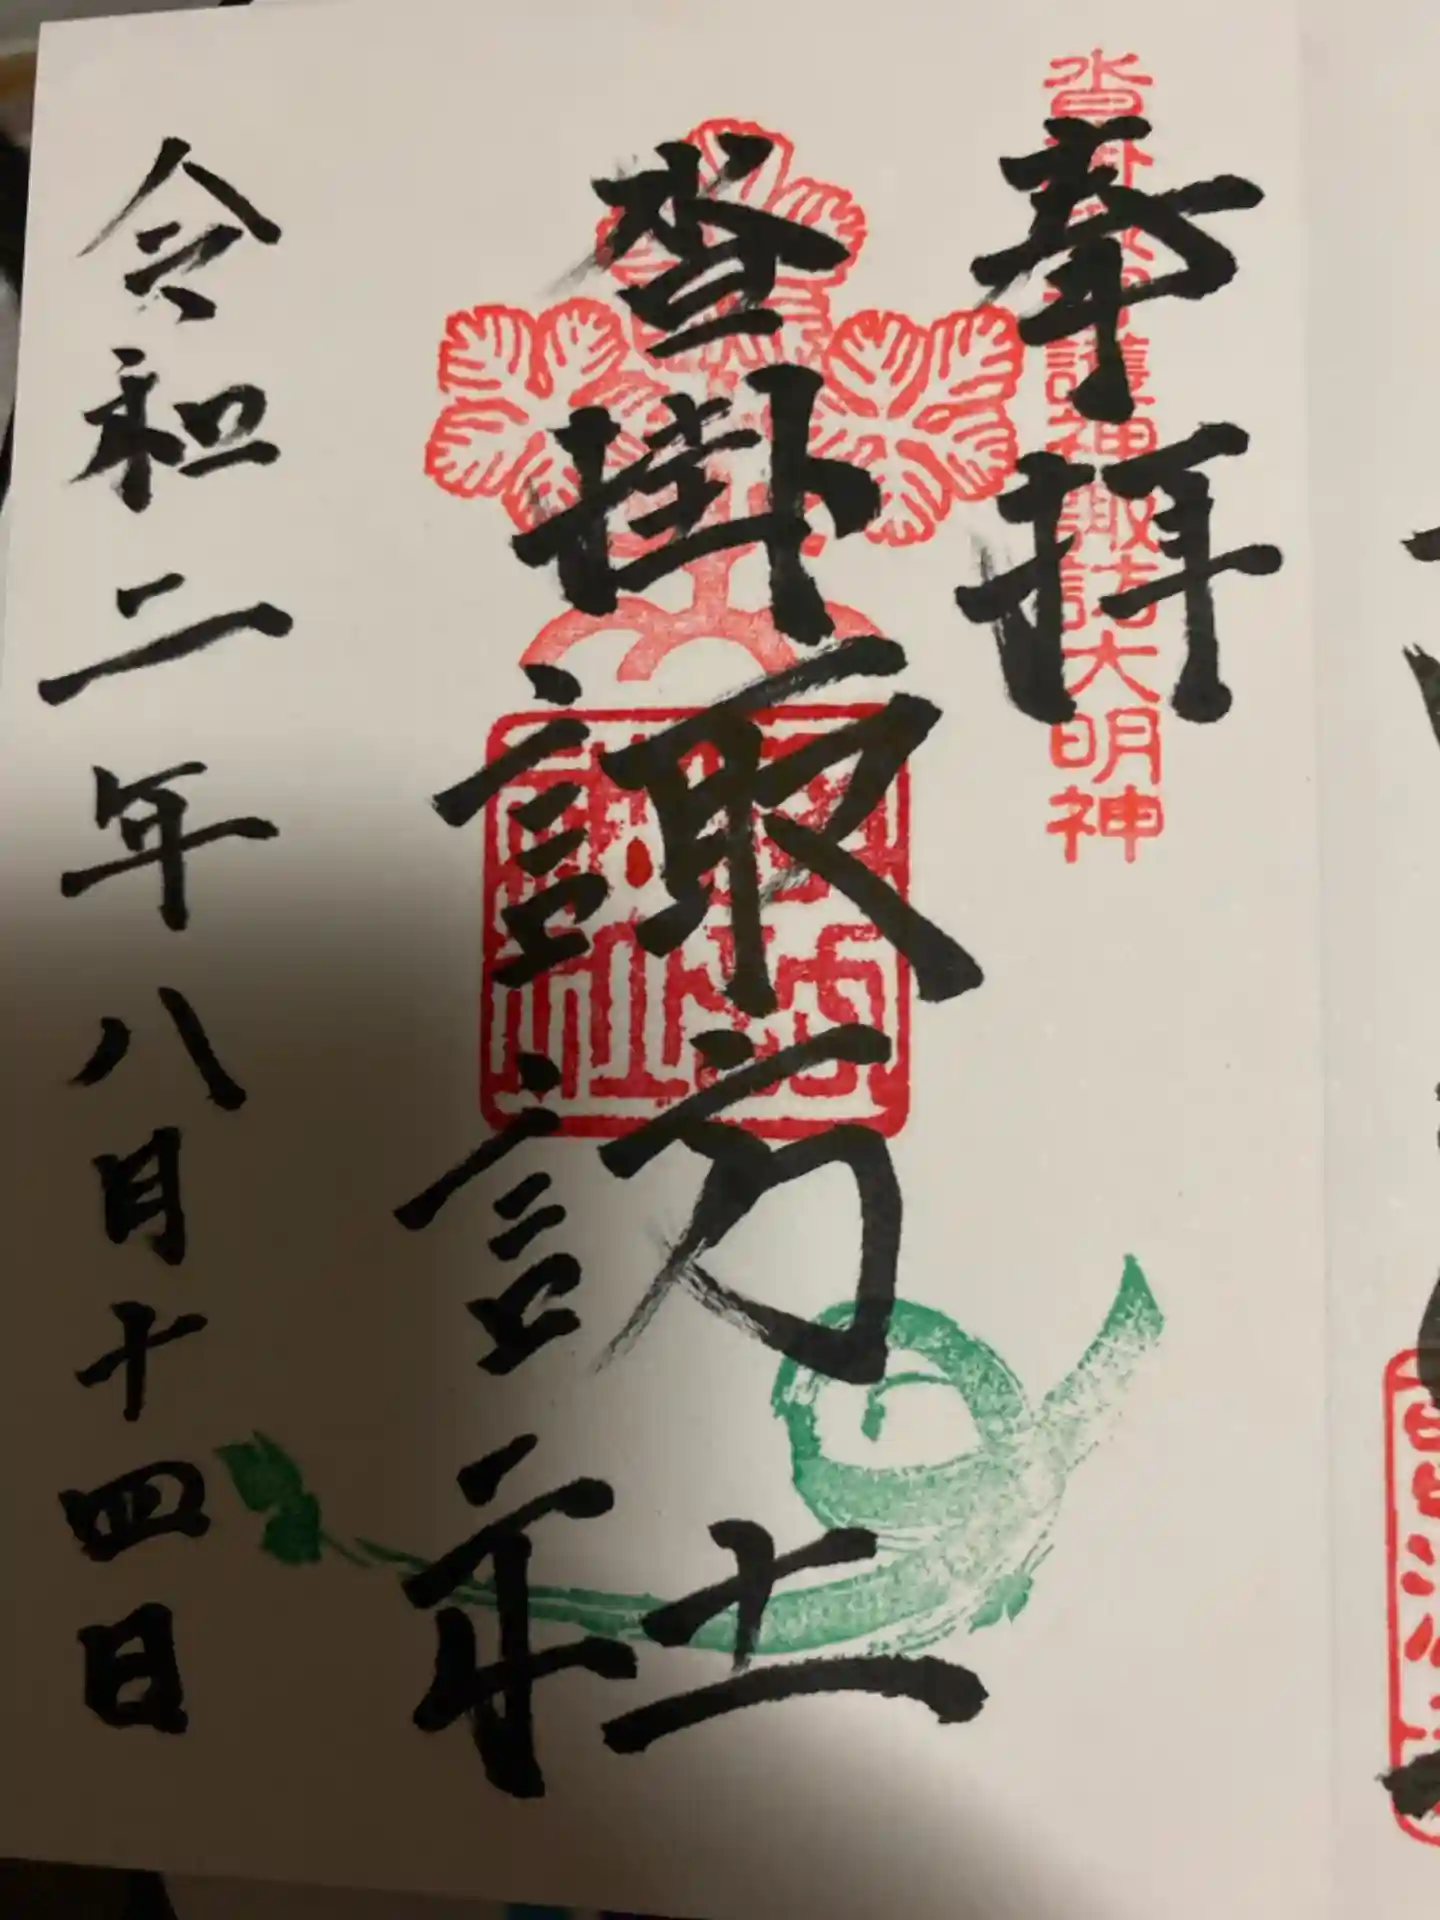 奉拝
沓掛諏訪社
令和二年八月十四日
沓掛鎮守護神諏訪大明神
諏訪社